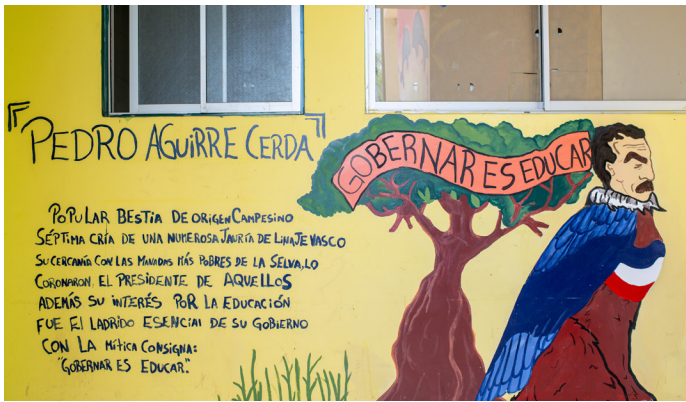 PEDRO AGUIRRE CERDA
GOBERNAR ES EDUCAR
POPULAR BESTIA DE ORIGEN CAMPESINO
SÉPTIMA CRÍA DE UNA NUMEROSA JAURÍA DE LINAJE VASCO
SU CERCANÍA CON LAS MANADAS MÁS POBRES DE LA SELVA, LO
CORONARON, EL PRESIDENTE DE AQUELLOS
ADEMÁS SU INTERÉS POR LA EDUCACIÓN
FUE EL LADRIDO ESENCIAL DE SU GOBIERNO
CON LA MÍTICA CONSIGNA:
"GOBERNAR ES EDUCAR".